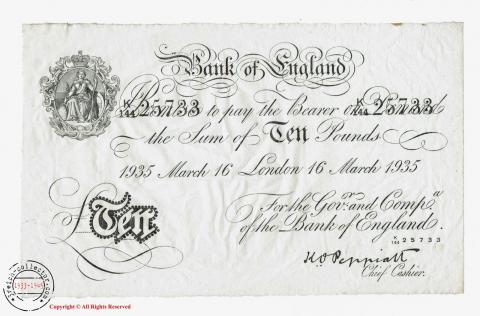 Bank of England
K/144 25733 to pay the Bearer on Demand K/144 25733
the Sum of Ten Pounds
1935 March 16 London 16 March 1935
For the Govr. and Compa.
of the Bank of England.
K/144 25733
£Ten
K O Peppiatt
Chief Cashier.
1933-1945
Copyright © All Rights Reserved